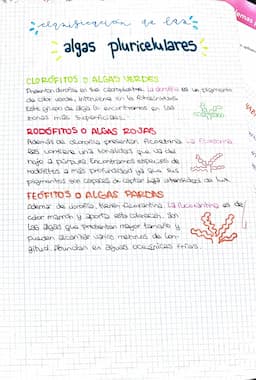 clasificación de las
algas pluricelulares
CLORÓFITOS O ALGAS VERDES
Presentan clorofila en sus cloroplastos. La clorofila es un pigmento
de color verde, interviene en la fotosíntesis.
Este grupo de algas lo encontramos en las
zonas más superficiales.
RODÓFITOS O ALGAS ROJAS
Además de clorofila, presentan ficoeritrina. La ficoeritrina
les confiere una tonalidad que va del
rojo a púrpura. Encontramos especies de
rodófitos a más profundidad ya que sus
pigmentos son capaces de captar baja intensidad de luz.
FEÓFITOS O ALGAS PARDAS
Además de clorofila, tienen fucoxantina. La fucoxantina es de
color marrón y aporta esta coloración. Son
las algas que presentan mayor tamaño y
pueden alcanzar varios metros de lon-
gitud. Abundan en aguas oceánicas frías.